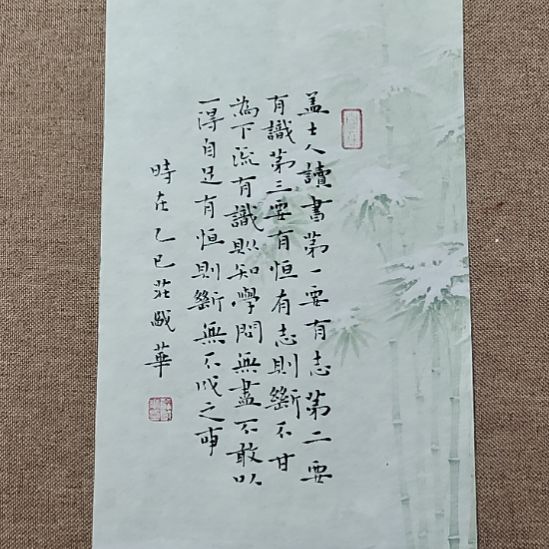 盖士人讀書第一要有志第二要
有識第三要有恒有志則斷不甘
為下流有識則知學問無盡不敢以
一得自足有恒則斷無不成之事
時在乙巳莊晟華